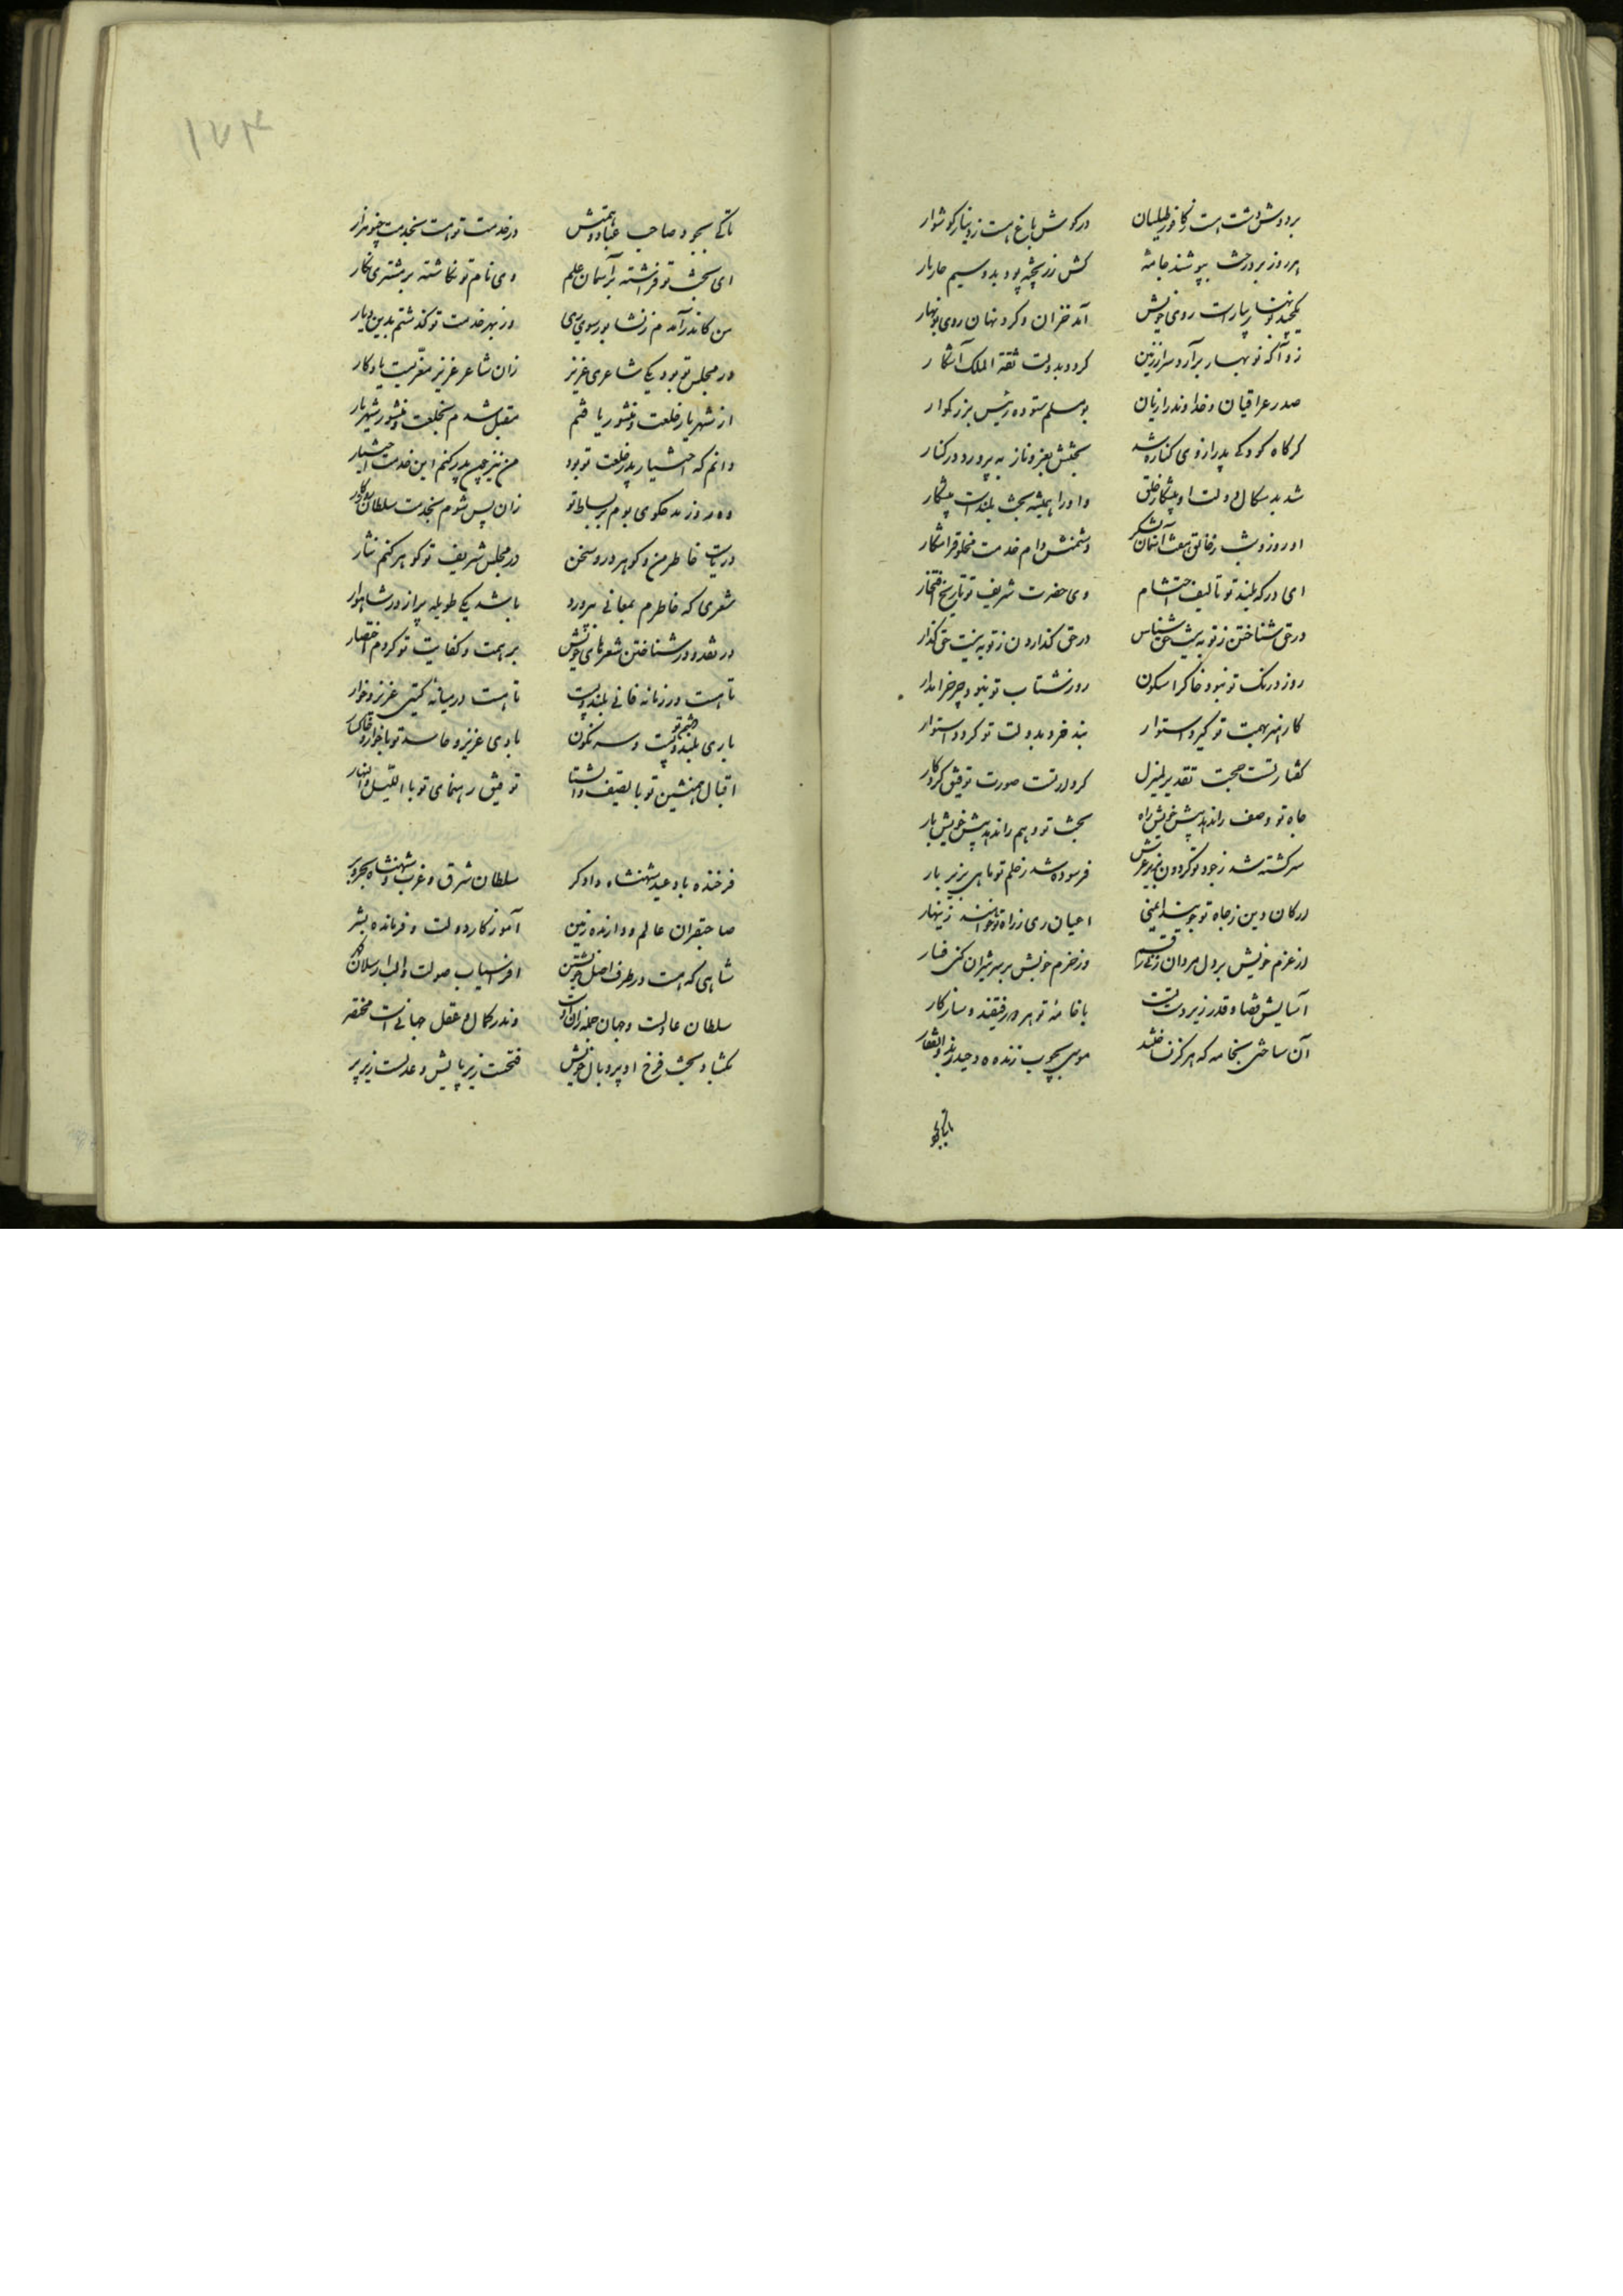 بر دوش دشت هست ز کافور طیلسان در گوش باغ هست ز دینار گوشوار
امروز بر درخت بپوشند جامهٔ کش زر پخته پود بود و سیم خار تار
یکچند نوبهار بیاراست روی خویش آمد خزان و کرد نهان روی نوبهار
زود آنکه نوبهار برآرد سر از زمین گردد بدولت ثقة الملک آشکار
صدر عراقیان و خداوند رازیان بومسلم ستوده رئیس بزرکوار
کر کاه کودکی پدر از وی کناره شد بختش بعز و ناز بپرورد در کنار
شد بدسکال دولت او پیشکار خلق واو را همیشه بخت بلندست پیشکار
او روز و شب ز خالق هفت آسمان بشکر دشمنش دام خدمت مخلوق را شکار
ای درکه بلند تو تالیف احتشام وی حضرت شریف تو تاریخ افتخار
در حق شناختن ز تو به نیست حق شناس در حق کذاردن ز تو به نیست حق کذار
روز درنک تو نبود خاک را سکون روز شتاب تو نبود چرخ را مدار
کار هنر بهمت تو گیرد استوار بند خرد بدولت تو کردد استوار
کفتار تست حجت تقدیر لم یزل کردار تست صورت توفیق کردکار
جاه تو وصف را ندهد پیش خویش راه بخت تو وهم را ندهد پیش خویش بار
سرکشته شد ز جود تو کردون بزیر عرش فرسوده شد ز حلم تو ماهی بزیر بار
ارکان دین ز جاه تو جویند ایمنی اعیان ری ز راه تو خواهند زینهار
از عزم خویش بر دل مردان زنی رقم وز حزم خویش بر سر شیران کنی فسار
آسایش قضا و قدر زیر دست تست با خامهٔ تو هر دو رفیقند و سازکار
آن ساختی بخامه که هرکز نساختند موسی بچوب زنده و حیدر بذوالفقار
تاکی بجود صاحب عباد و همتش در خدمت تو هست بخدمت چنو هزار
ای بخت تو فراشته بر آسمان علم وی نام تو نکاشته بر مشتری نکار
من کاندر آمدم ز نشابور سوی ری وز بهر خدمت تو کذشتم بدین دیار
در مجلس تو بود یکی شاعری عزیز زان شاعر عزیز معزیست یادکار
از شهریار خلعت و منشور یافتم مقبل شدم بخلعت و منشور شهریار
دانم که اختیار پدر خلعت تو بود من نیز چون پدر کنم این خدمت اختیار
ده روز مدحکوی بوم بر بساط تو زان پس شوم بخدمت سلطان روزکار
دریاست خاطر من و کوهر درو سخن در مجلس شریف تو کوهر کنم نثار
شعری که خاطرم بمعانی بپرورد باشد یکی طویله پر از در شاهوار
در نقد و در شناختن شعرهای خویش بر همت و کفایت تو کردم اختصار
تا هست در زمانه فانی بلند و پست تا هست در میانه کیتی عزیز و خوار
باری بلند و خصم تو پست و سرنکون بادی عزیز و حاسد تو باد خوار و خاکسار
اقبال همنشین تو بالصیف والشتا توفیق رهنمای تو باللیل والنهار
فرخنده باد عید شهنشاه دادکر سلطان شرق و غرب و شهنشاه بحر و بر
صاحبقران عالم و دارنده زمین آموزکار دولت و فرمانده بشر
شاهی که هست در طرف اصل خویشتن افراسیاب صولت والب ارسلان کهر
سلطان عادلست و جهان جمله زان اوست وندر کمال عقل جهانی است مختصر
بکشاد بخت فرخ او پر و بال خویش فتحست زیر بالش و عدلست زیر پر
تاکی بجود
۱۷۴